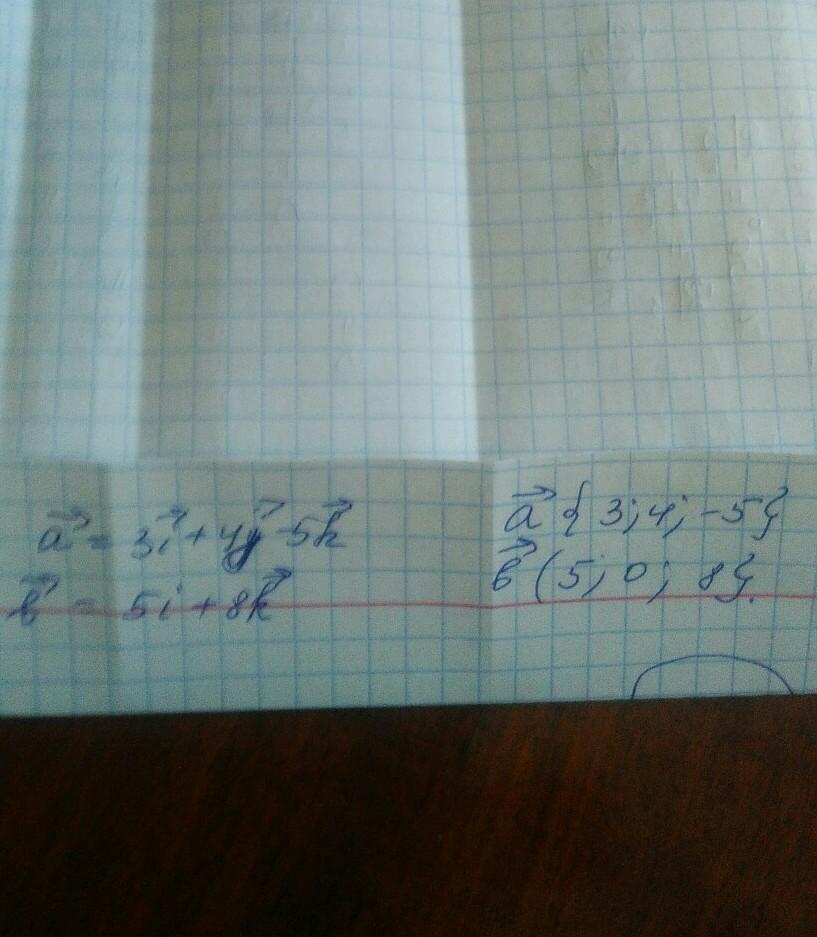 a⃗ = 3i⃗ + 4j⃗ - 5k⃗
b⃗ = 5i + 8k⃗
a⃗ { 3; 4; -5}
b⃗ (5; 0; 8}.